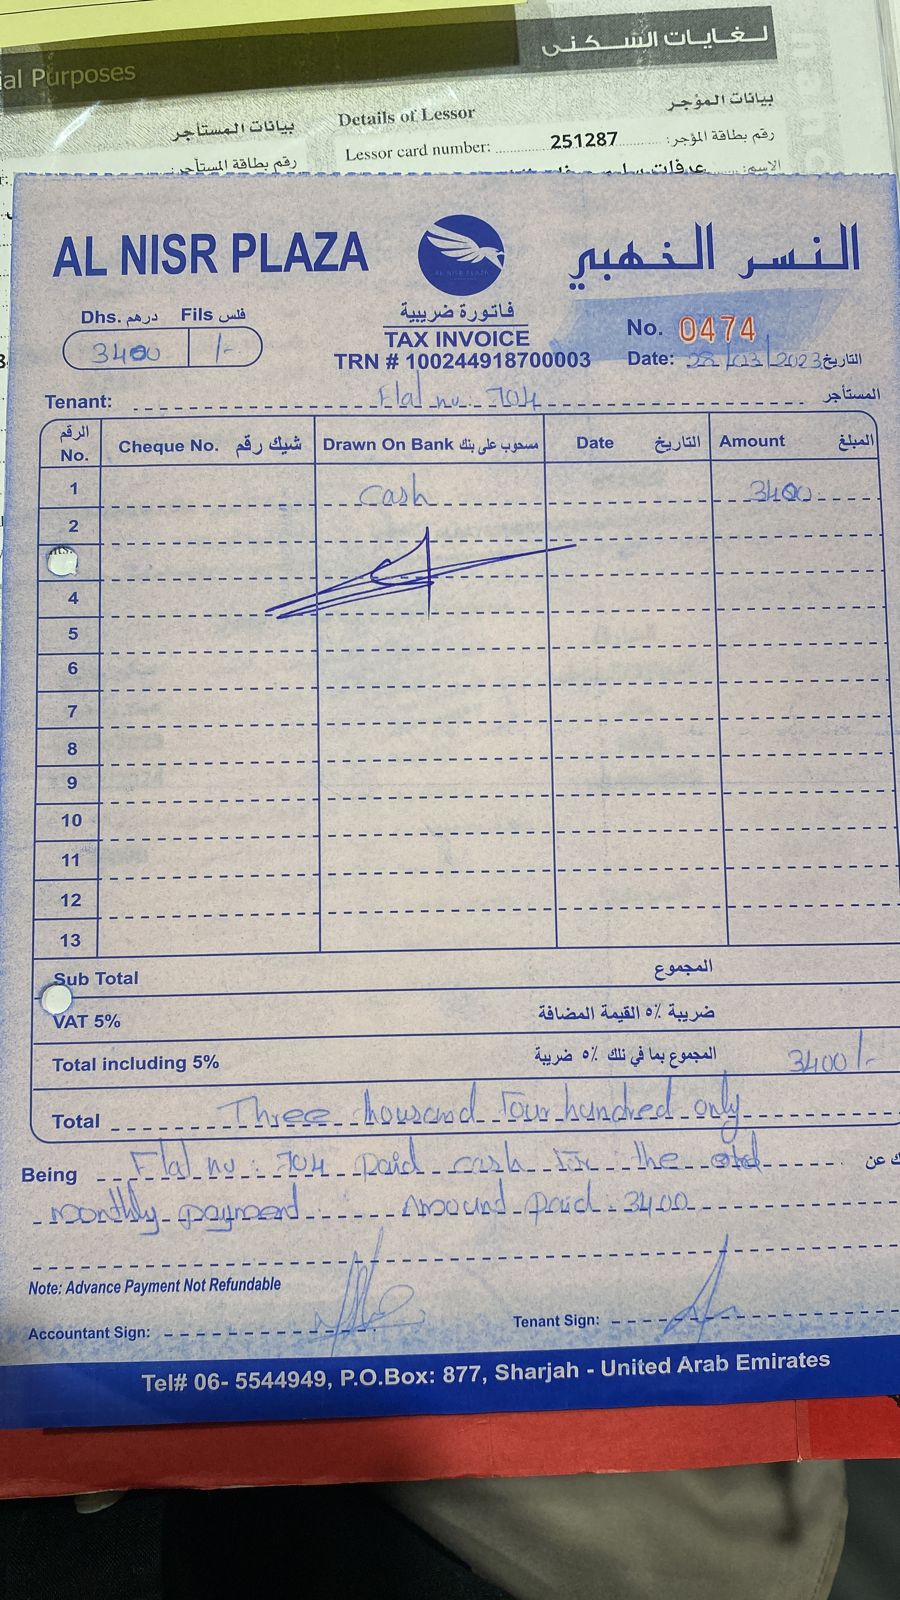 لغايات السكنى
ial Purposes
بيانات المؤجر
Details of Lessor
بيانات المستأجر
رقم بطاقة المؤجر:
251287
Lessor card number:
رقم بطاقة المستأجر:
الاسم:
AL NISR PLAZA
AL NISR PLAZA
النسر الخهبي
Dhs. درهم Fils فلس
3400 /-
فاتورة ضريبية
TAX INVOICE
TRN # 100244918700003
No. 0474
Date: 28/03/2023 التاريخ
Tenant: Flat nu: 704 المستأجر
الرقم No. Cheque No. شيك رقم Drawn On Bank مسحوب على بنك Date التاريخ Amount المبلغ
1 cash 3400
2
4
5
6
7
8
9
10
11
12
13
Sub Total المجموع
VAT 5% ضريبة ٥٪ القيمة المضافة
Total including 5% المجموع بما في نلك ٥٪ ضريبة 3400/-
Total Three thousand Four hundred only
Being Flat nu: 704 paid cash for the عن
monthly payment Amound paid 3400
Note: Advance Payment Not Refundable
Accountant Sign: Tenant Sign:
Tel# 06- 5544949, P.O.Box: 877, Sharjah - United Arab Emirates